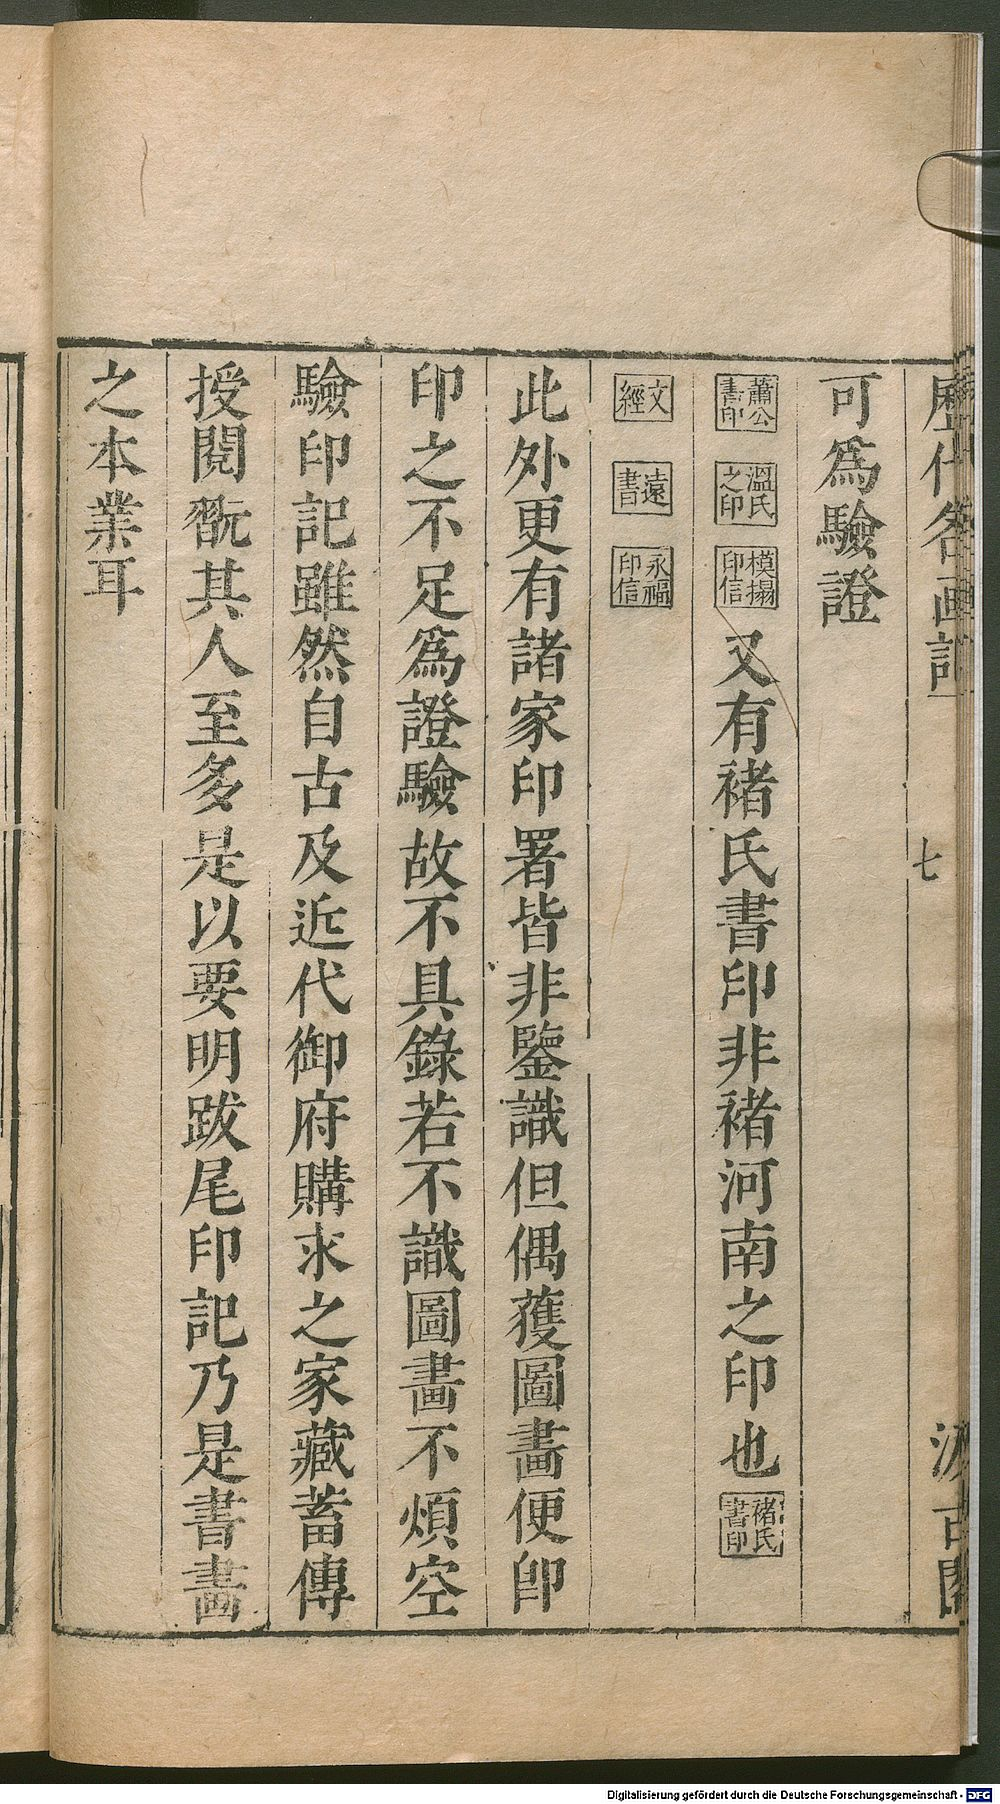 歷代名画記 七 汲古閣
可爲驗證
蕭公書印 溫氏之印 模搨印信 又有褚氏書印非褚河南之印也 褚氏書印
文經 遠書 永福印信
此外更有諸家印署皆非鑒識但偶獲圖畵便卽
印之不足爲證驗故不具錄若不識圖畵不煩空
驗印記雖然自古及近代御府購求之家藏蓄傳
授閱翫其人至多是以要明跋尾印記乃是書畵
之本業耳
Digitalisierung gefördert durch die Deutsche Forschungsgemeinschaft - DFG